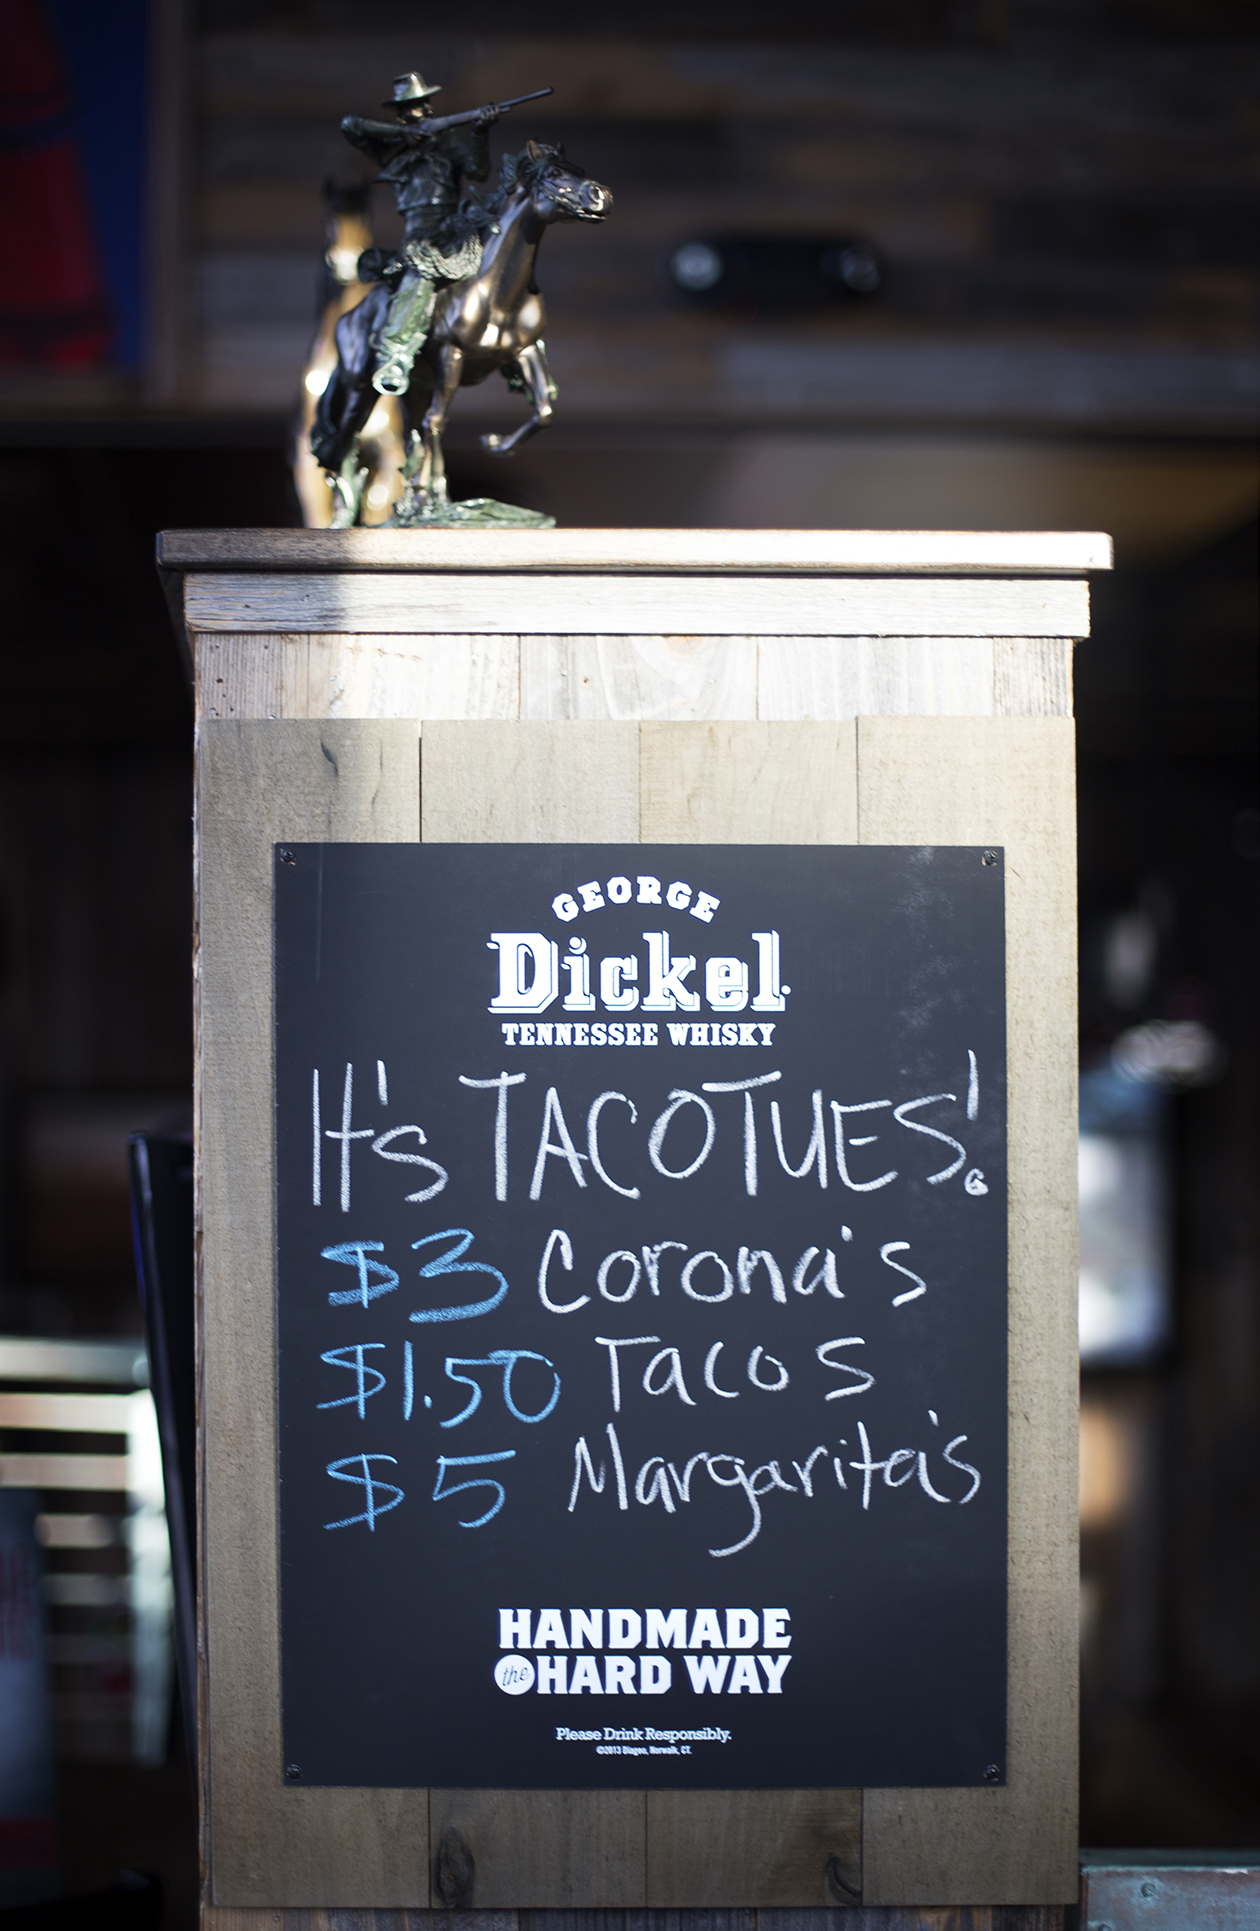 GEORGE
Dickel
TENNESSEE WHISKY
It's TACOTUES!
$3 Corona's
$1.50 Tacos
$5 Margarita's
HANDMADE
the HARD WAY
Please Drink Responsibly.
©2013 Diageo, Norwalk, CT.